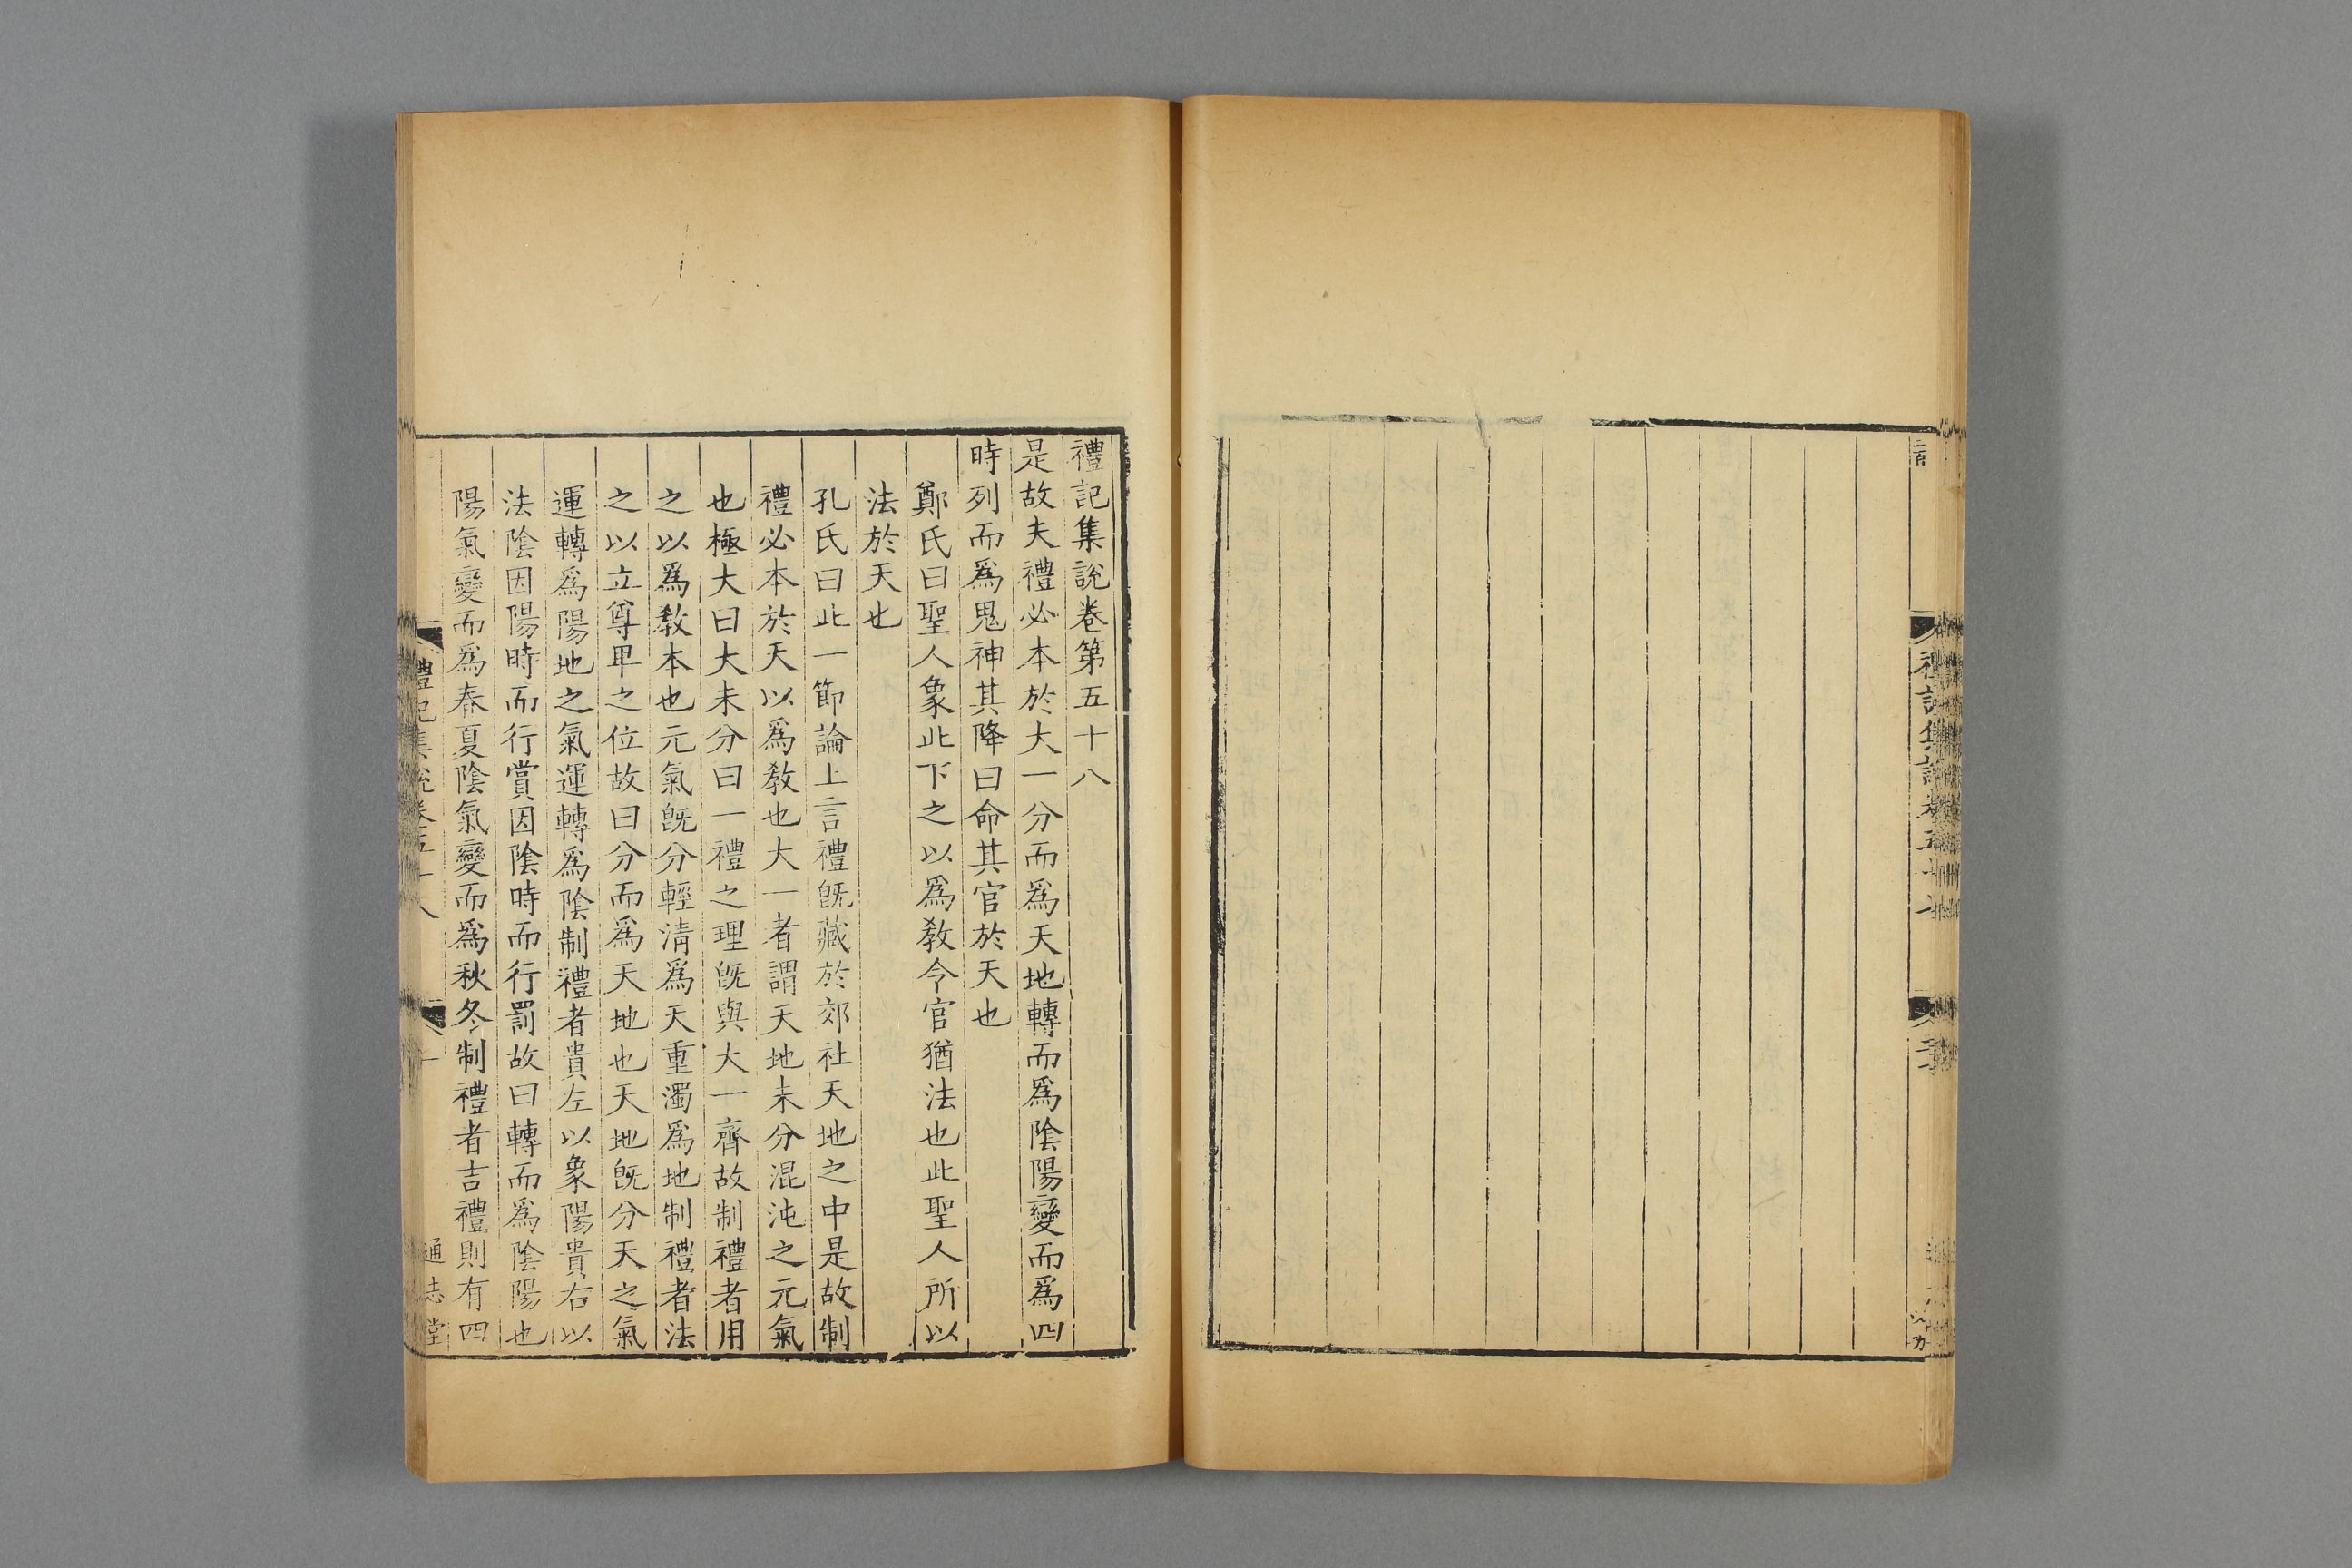 禮記集說卷五十七
禮記集說卷第五十八
是故夫禮必本於大一分而爲天地轉而爲陰陽變而爲四
時列而爲鬼神其降曰命其官於天也
鄭氏曰聖人象此下之以爲敎令官猶法也此聖人所以
法於天也
孔氏曰此一節論上言禮旣藏於郊社天地之中是故制
禮必本於天以爲敎也大一者謂天地未分混沌之元氣
也極大曰大未分曰一禮之理旣與大一齊故制禮者用
之以爲敎本也元氣旣分輕淸爲天重濁爲地制禮者法
之以立尊卑之位故曰分而爲天地也天地旣分天之氣
運轉爲陽地之氣運轉爲陰制禮者貴左以象陽貴右以
法陰因陽時而行賞因陰時而行罰故曰轉而爲陰陽也
陽氣變而爲春夏陰氣變而爲秋冬制禮者吉禮則有四
禮記集說卷五十八
一
通志堂